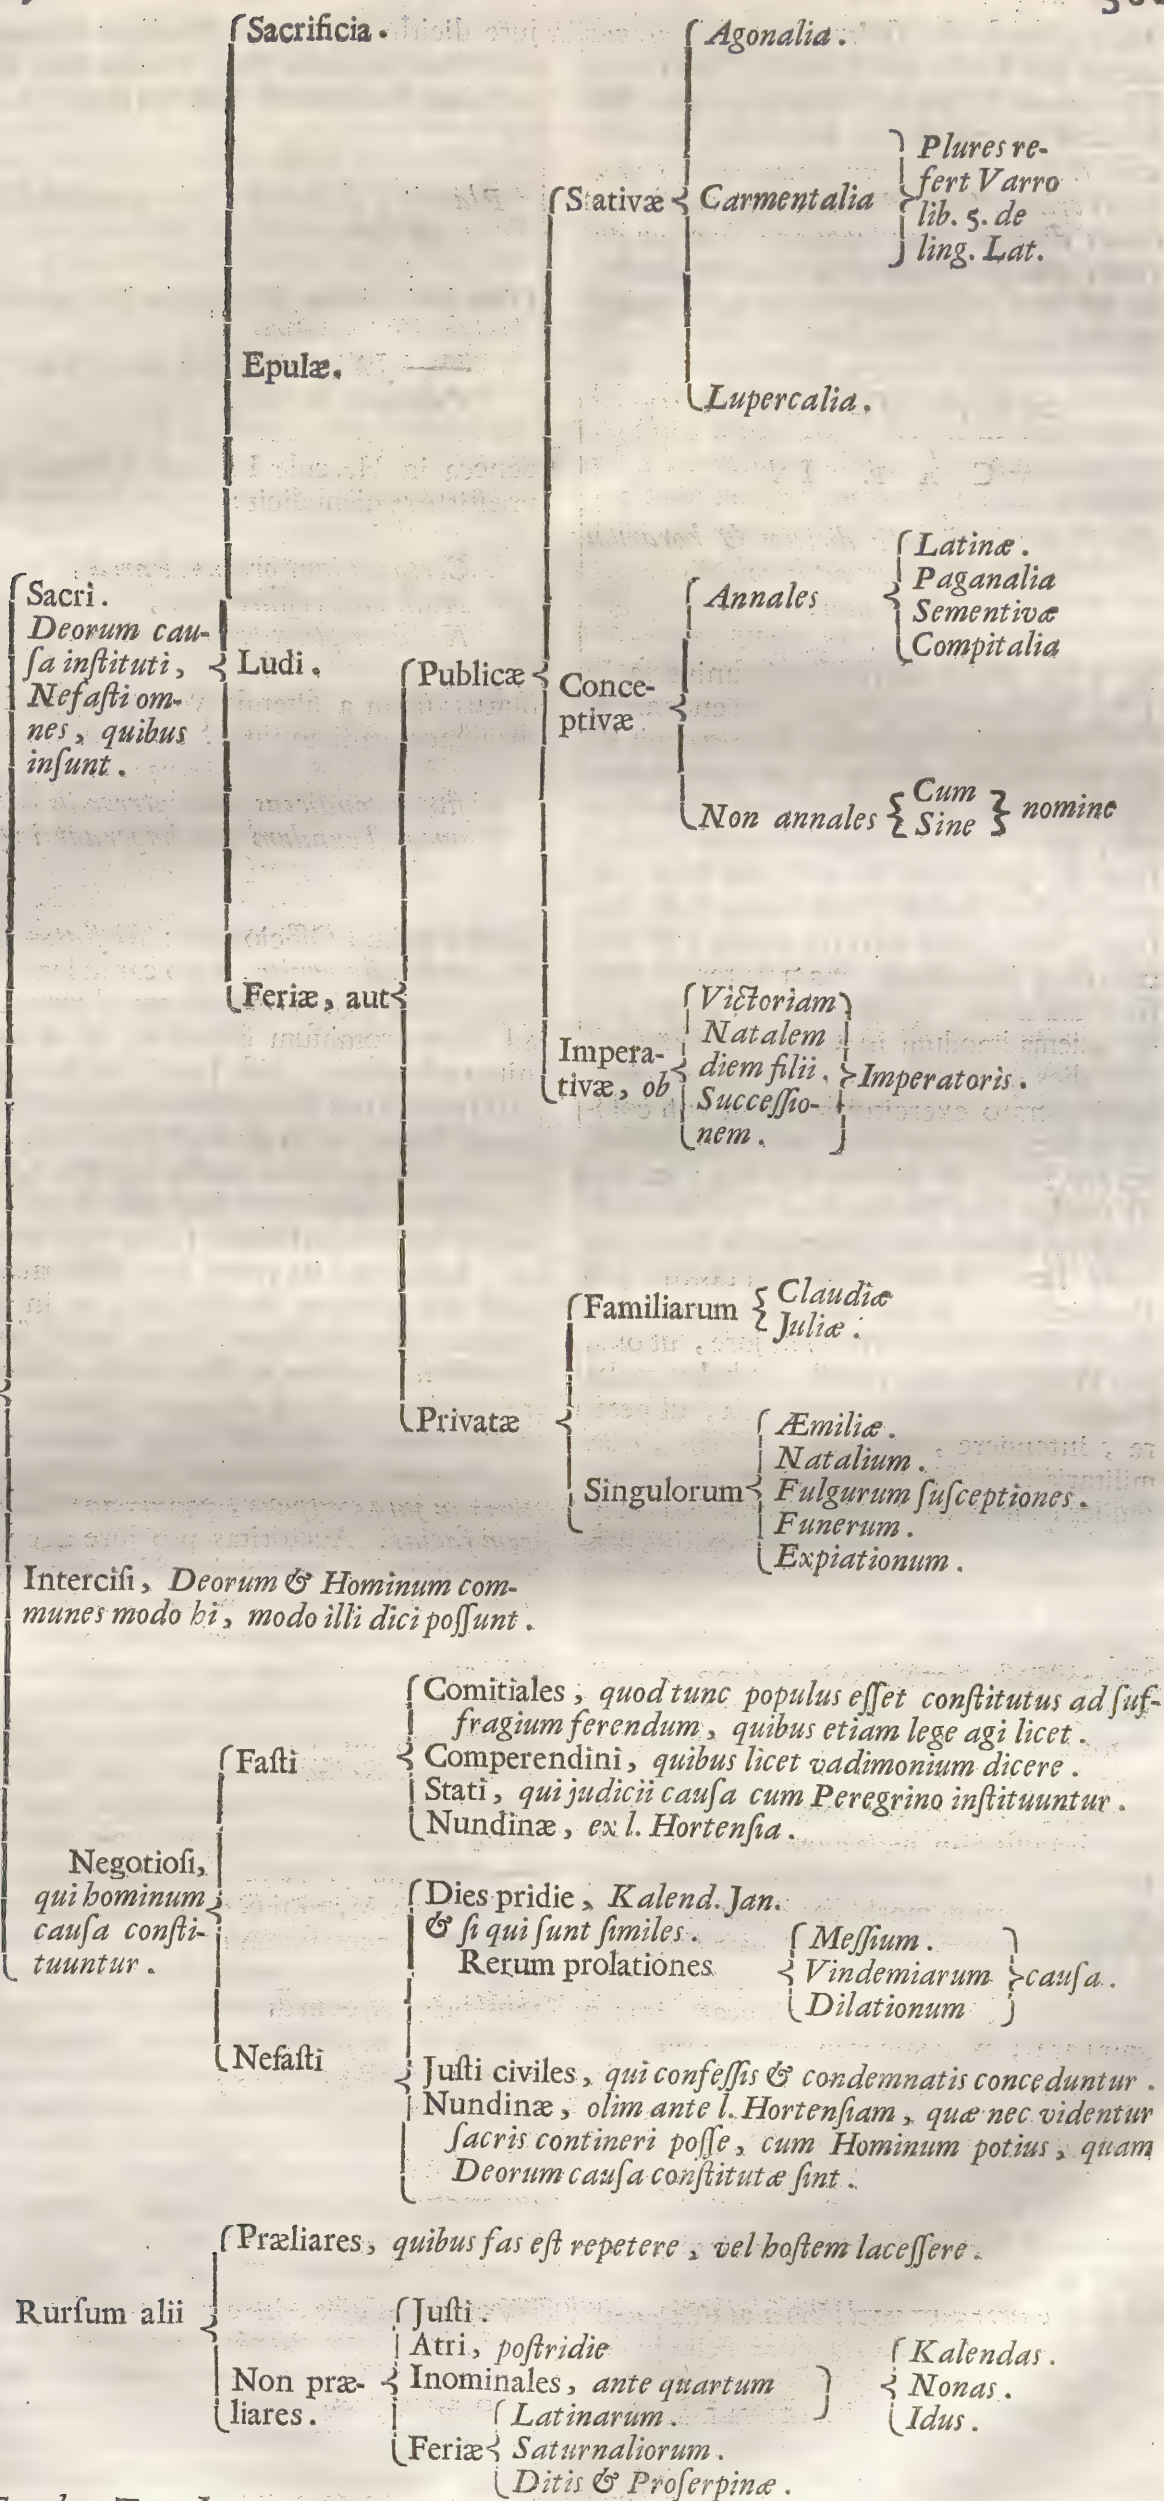 Sacrificia.
Epulæ.
Sacri.
Deorum cau-
ſa inſtituti,
Nefaſti om-
nes, quibus
inſunt.
Ludi.
Feriæ, aut
Publicæ
Stativæ
Agonalia.
Carmentalia
Plures re-
fert Varro
lib. 5. de
ling. Lat.
Lupercalia.
Conce-
ptivæ
Annales
Latinæ.
Paganalia
Sementivæ
Compitalia
Non annales
Cum
Sine
nomine
Impera-
tivæ, ob
Victoriam
Natalem
diem filii.
Succeſſio-
nem.
Imperatoris.
Privatæ
Familiarum
Claudiæ
Juliæ.
Singulorum
Æmiliæ.
Natalium.
Fulgurum ſuſceptiones.
Funerum.
Expiationum.
Interciſi, Deorum & Hominum com-
munes modo hi, modo illi dici poſſunt.
Negotioſi,
qui hominum
cauſa conſti-
tuuntur.
Faſti
Comitiales, quod tunc populus eſſet conſtitutus ad ſuf-
fragium ferendum, quibus etiam lege agi licet.
Comperendini, quibus licet vadimonium dicere.
Stati, qui judicii cauſa cum Peregrino inſtituuntur.
Nundinæ, ex l. Hortenſia.
Nefaſti
Dies pridie, Kalend. Jan.
& ſi qui ſunt ſimiles.
Rerum prolationes
Meſſium.
Vindemiarum
Dilationum
cauſa.
Juſti civiles, qui confeſſis & condemnatis conceduntur.
Nundinæ, olim ante l. Hortenſiam, quæ nec videntur
ſacris contineri poſſe, cum Hominum potius, quam
Deorum cauſa conſtitutæ ſint.
Rurſum alii
Præliares, quibus fas eſt repetere, vel hoſtem laceſſere.
Non præ-
liares.
Juſti.
Atri, poſtridie
Inominales, ante quartum
Kalendas.
Nonas.
Idus.
Feriæ
Latinarum.
Saturnaliorum.
Ditis & Proſerpinæ.